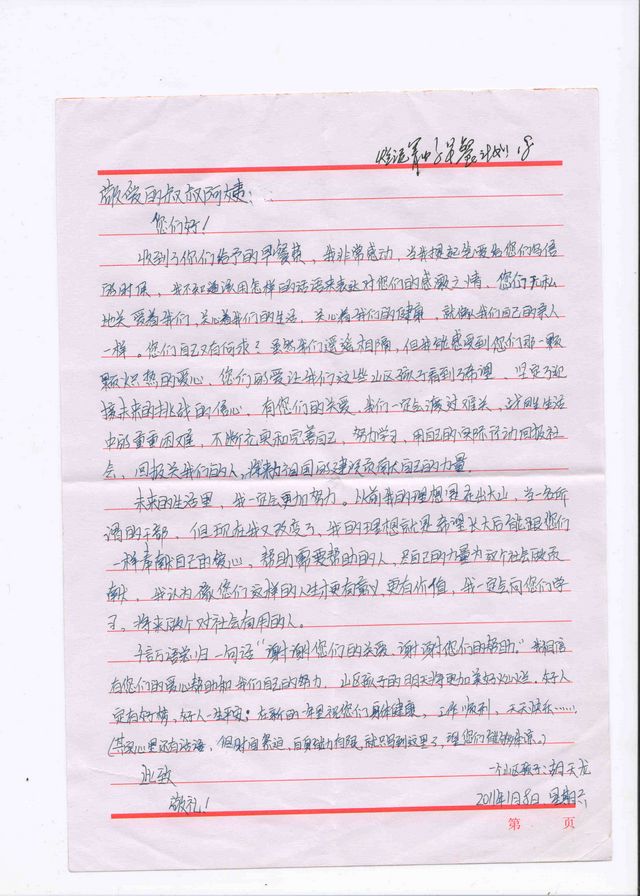 早餐计划
敬爱的叔叔阿姨：
您们好！
收到了你们给予的早餐费，我非常感动，当我提起笔要给您们写信
的时候，我不知道该用怎样的话语来表达对您们的感激之情，您们无私
地关爱着我们，关心着我们的生活，关心着我们的健康，就像我们自己的亲人
一样。您们自己又有何求？虽然我们遥隔相隔，但我能感受到您们那一颗
颗炽热的爱心，您们的爱让我们这些山区孩子看到了希望，坚定了迎
接未来的挑战的信心，有您们的关爱，我们一定会渡过难关，战胜生活
中的重重困难，不断充实和完善自己，努力学习，用自己的实际行动回报社
会，回报关我们的人，将来为祖国的建设贡献大自己的力量。
未来的生活里，我一定会更加努力。以前我的理想是走出大山，当一名所
谓的干部，但现在我又改变了，我的理想就是希望长大后能跟您们
一样奉献自己的爱心，帮助需要帮助的人，尽自己的力量为这个社会做贡
献，我认为像您们这样的人生才更有意义，更有价值，我一定会向您们学
习，将来做个对社会有用的人。
千言万语总归一句话“谢谢您们的关爱，谢谢您们的帮助。”我相信
有您们的爱心帮助和我们自己的努力，山区孩子的明天将更加美好。人说，好人
定有好情，好人一生平安；在新的一年里祝您们身体健康，工作顺利，天天快乐……
（其实心里还有话语，但时间紧迫，自身能力有限，就只写到这里了，望您们谅。）
此致
一个山区孩子：胡天龙
敬礼！
2011年1月8日 星期六
第 页